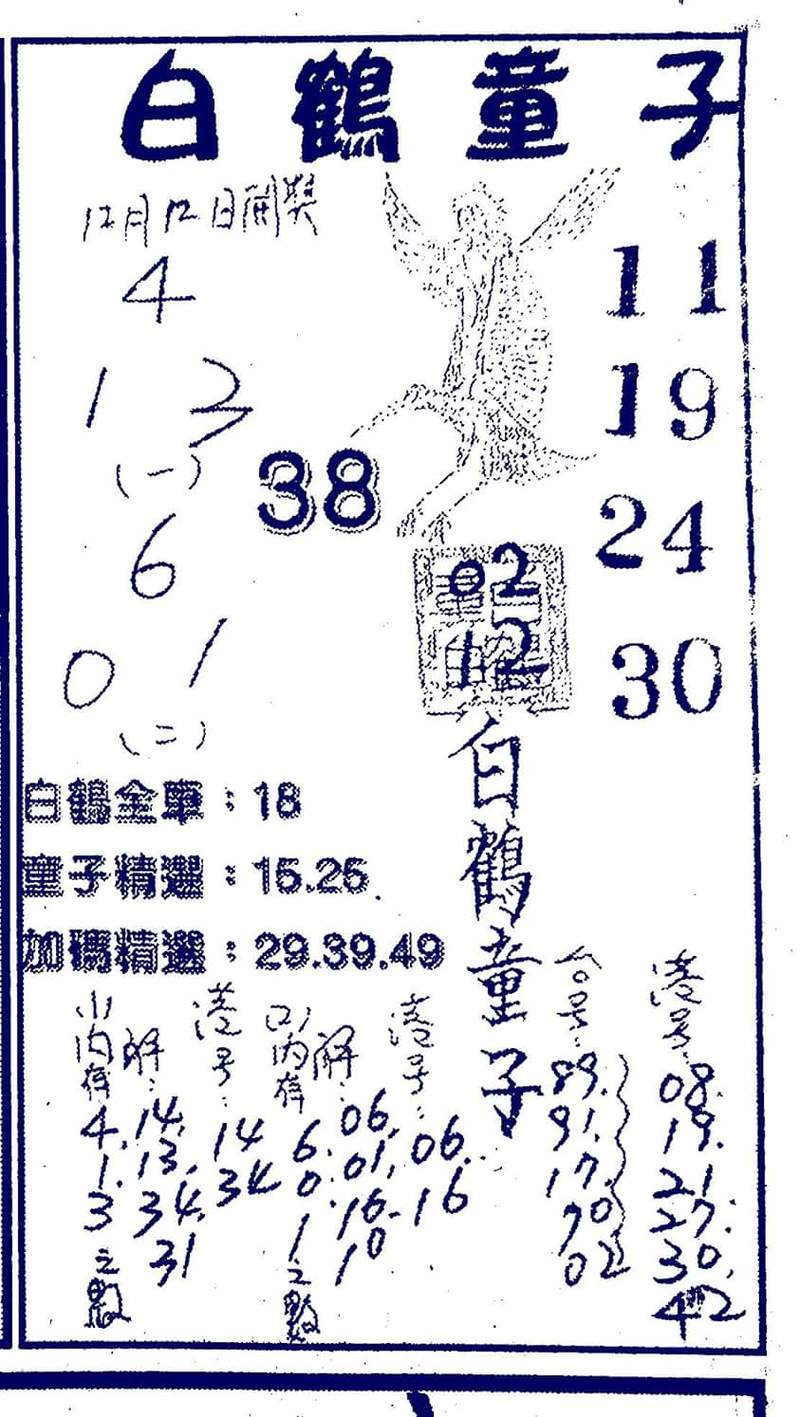 白鶴童子
12月12日開獎
4
1 3
(一)
6
0 1
(二)
38
11
19
24
30
02
12
白鶴童子
白鶴全車：18
童子精選：15.25
加碼精選：29.39.49
(1)內存
4.
1.
3
之數
解：
14.
13.
34.
31
港号：
14
34
(2)內存
6.
0.
1
之數
解：
06.
01.
16.
10
港号：
06.
16
合号：
89.
91.
17.
70
02
港号：
08.
19.
21
27.
30.
42